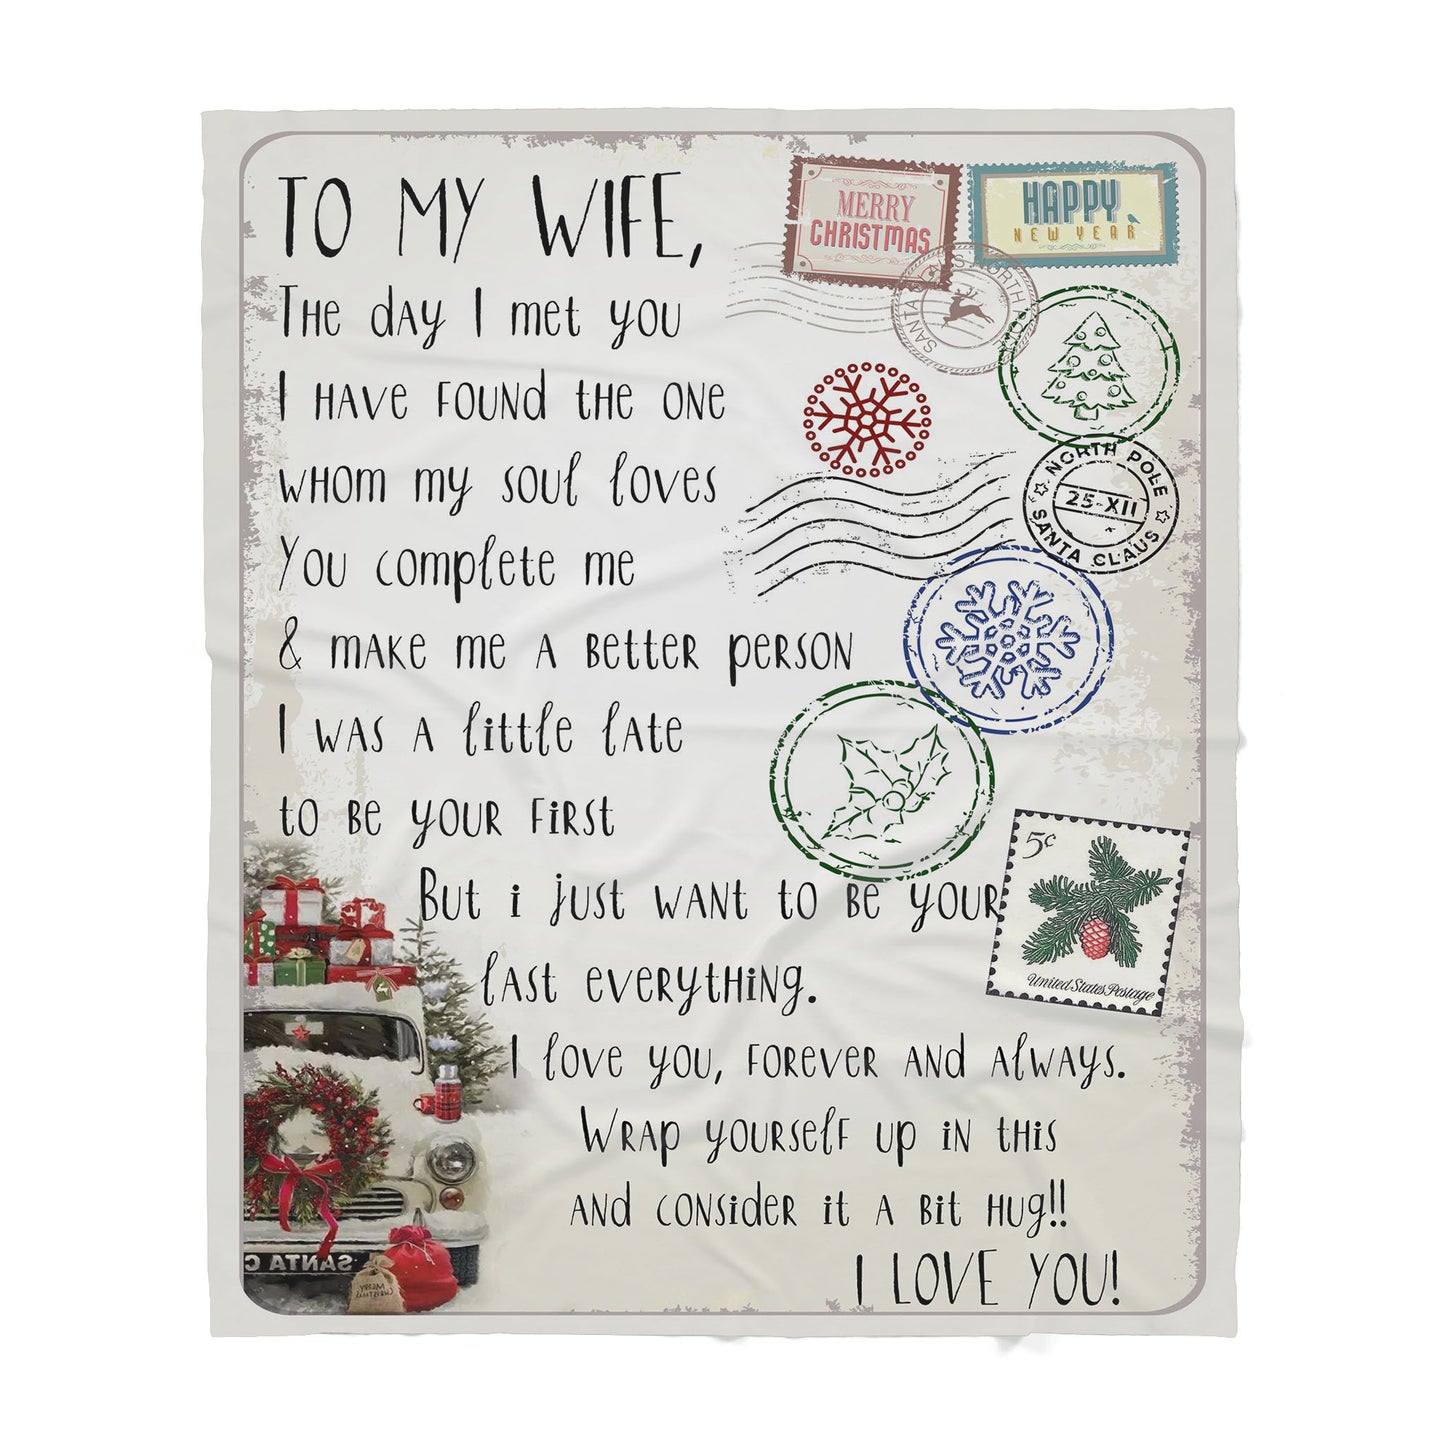 TO MY WIFE,
THE day I met you
I HAVE FOUND THE ONE
WHOM my soul loves
You complete me
& MAKE ME A BETTER PERSON
I WAS A little late
to BE YOUR FIRST
But i just want to be your
last everything.
I love you, FOREVER AND Always.
WRAP yourself up in this
AND CONSIDER it A Bit Hug!!
I LOVE YOU!
MERRY
CHRISTMAS
HAPPY
NEW YEAR
SANTA CLAUS NORTH POLE
NORTH POLE
25-XII
SANTA CLAUS
5¢
United States Postage
SANTA C
MERRY
CHRISTMAS